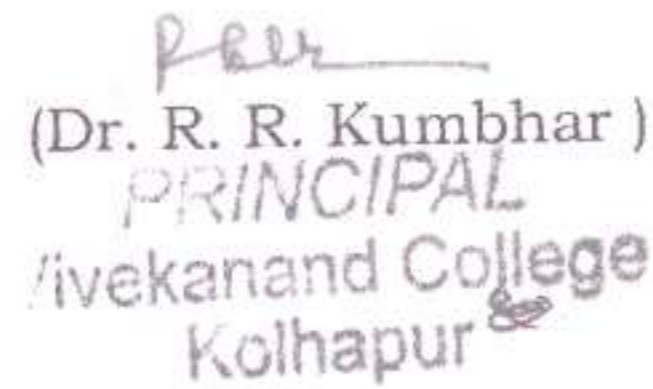 (Dr. R. R. Kumbhar )
PRINCIPAL
Vivekanand College
Kolhapur